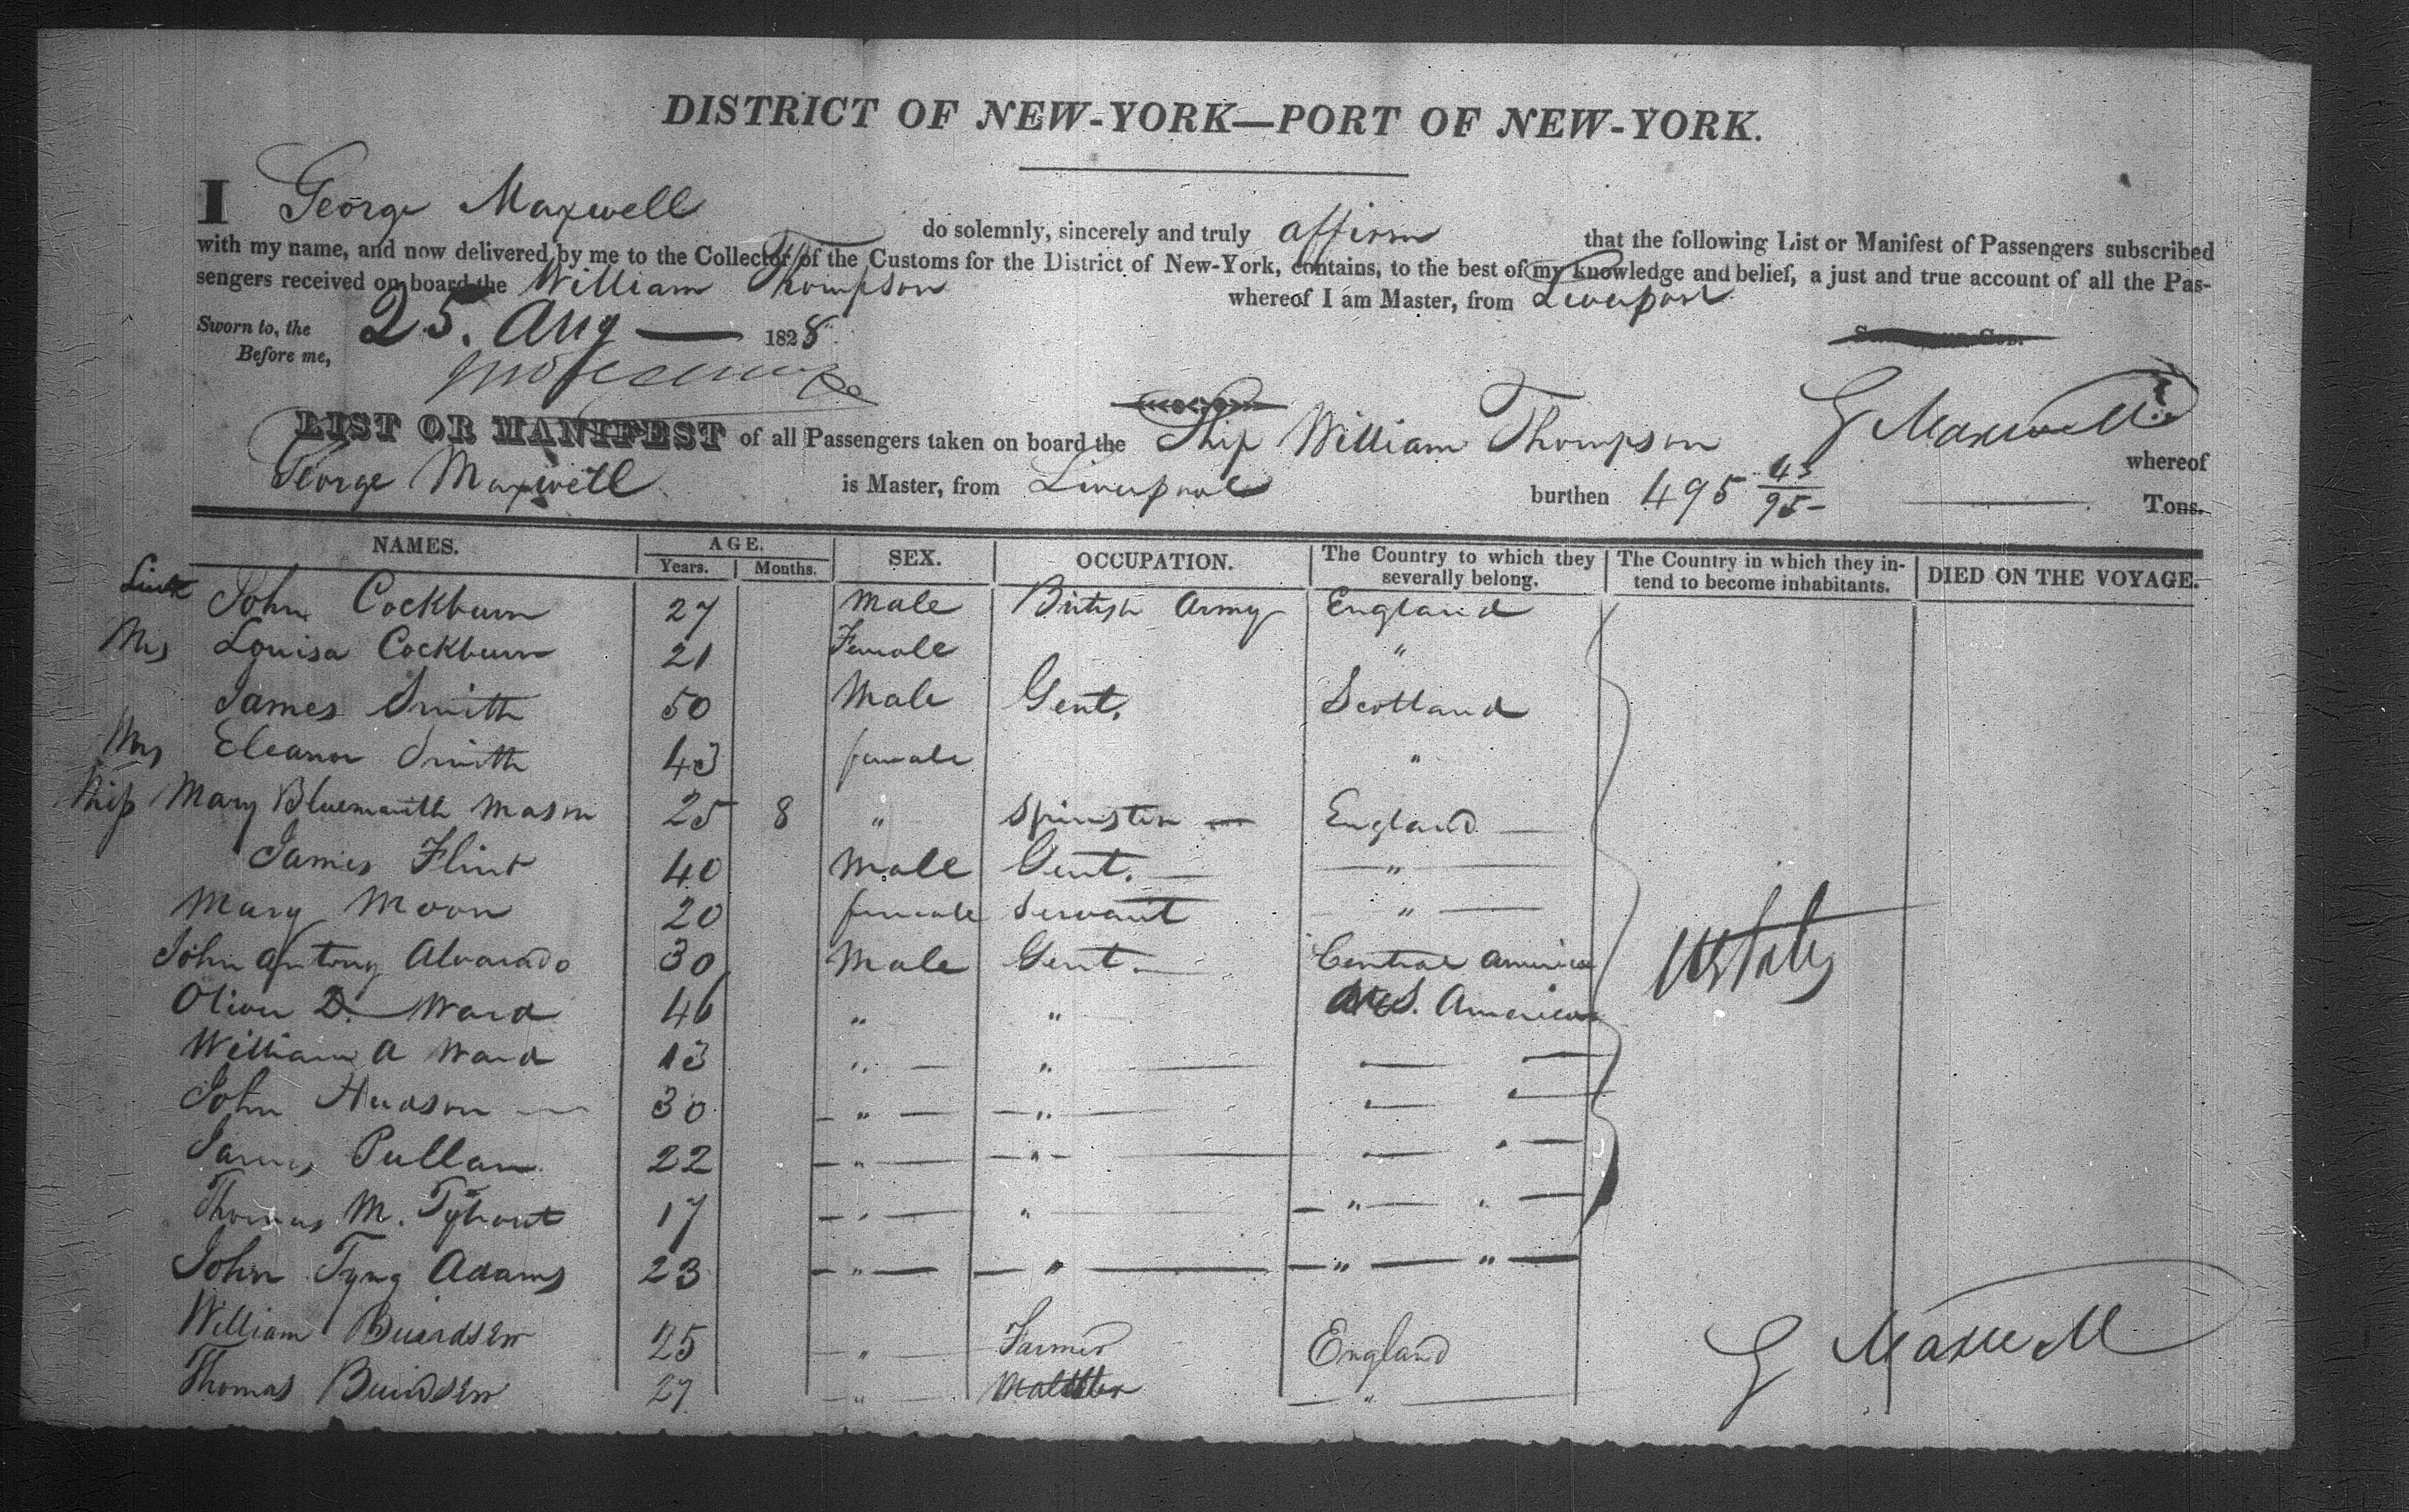 DISTRICT OF NEW-YORK—PORT OF NEW-YORK.
I George Maxwell do solemnly, sincerely and truly affirm that the following List or Manifest of Passengers subscribed
with my name, and now delivered by me to the Collector of the Customs for the District of New-York, contains, to the best of my knowledge and belief, a just and true account of all the Pas-
sengers received on board the William Thompson whereof I am Master, from Liverpool
Sworn to, the 25. Aug — 1828.
Before me,
G Maxwell
LIST OR MANIFEST of all Passengers taken on board the Ship William Thompson whereof
George Maxwell is Master, from Liverpool burthen 495 43/95 Tons.
NAMES. AGE. Years. Months. SEX. OCCUPATION. The Country to which they severally belong. The Country in which they in-tend to become inhabitants. DIED ON THE VOYAGE.
Lieut John Cockburn 27 Male British Army England
Mrs Louisa Cockburn 21 Female "
James Smith 50 Male Gent. Scotland
Mrs Eleanor Smith 43 female "
Miss Mary Mason 25 8 " Spinster — England —
James Flint 40 Male Gent. — — " —
Mary Moon 20 female Servant " —
John Antony Alvarado 30 Male Gent. — Central America
Oliver D. Ward 46 " " S. America
William A Ward 13 " — " — — —
John Hudson — 30 — " — — " — — —
James Pullan 22 — " — — " — — " —
Thomas M. 17 — " — " — — " — " —
John Tyng Adams 23 — " — — " — — " — " —
William 25 — " Farmer England
Thomas 27 — " Maltster — " —
U States
G Maxwell